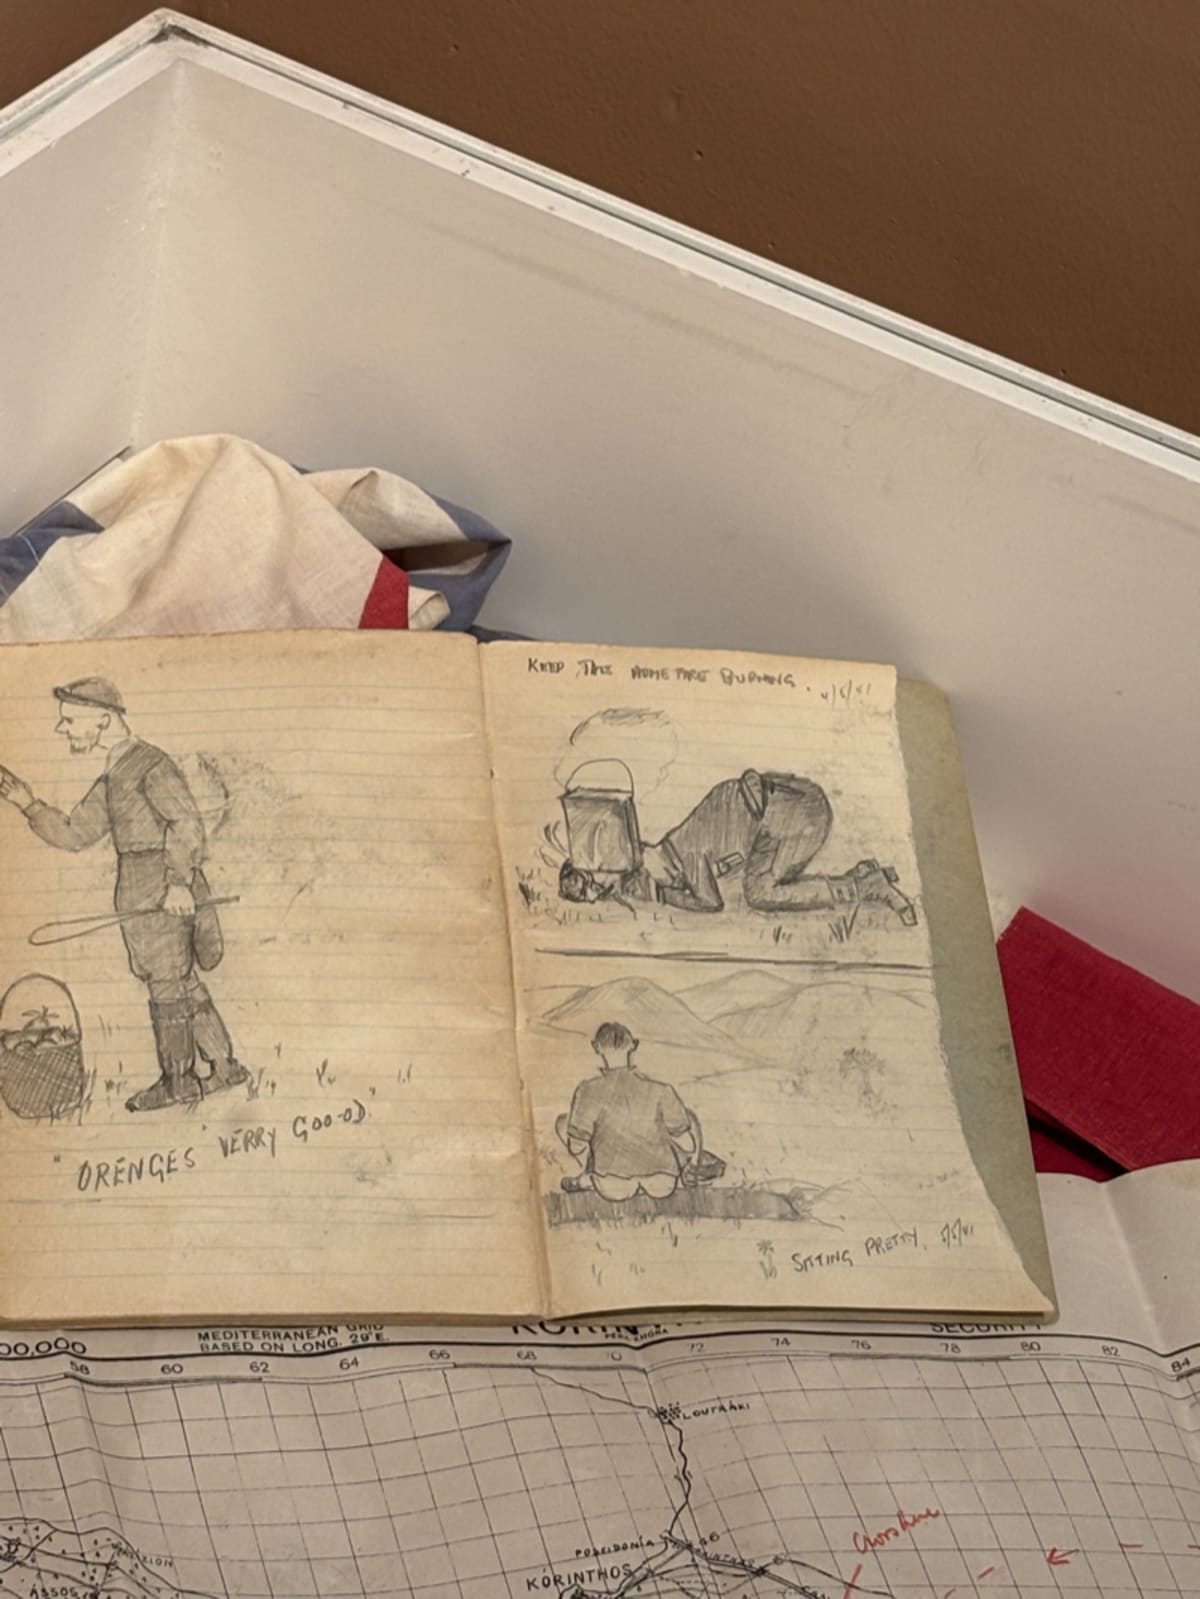 "ORENGES VERRY GOO-OD."
KEEP THE HOME FIRE BURNING. 4/5/41
SITTING PRETTY. 5/5/41
00,000
MEDITERRANEAN GRID
BASED ON LONG. 29°E.
SECURITY
58 60 62 64 66 68 70 72 74 76 78 80 82 84
LOUTRÁKI
POSEIDONÍA
KÓRINTHOS
ÁSSOS